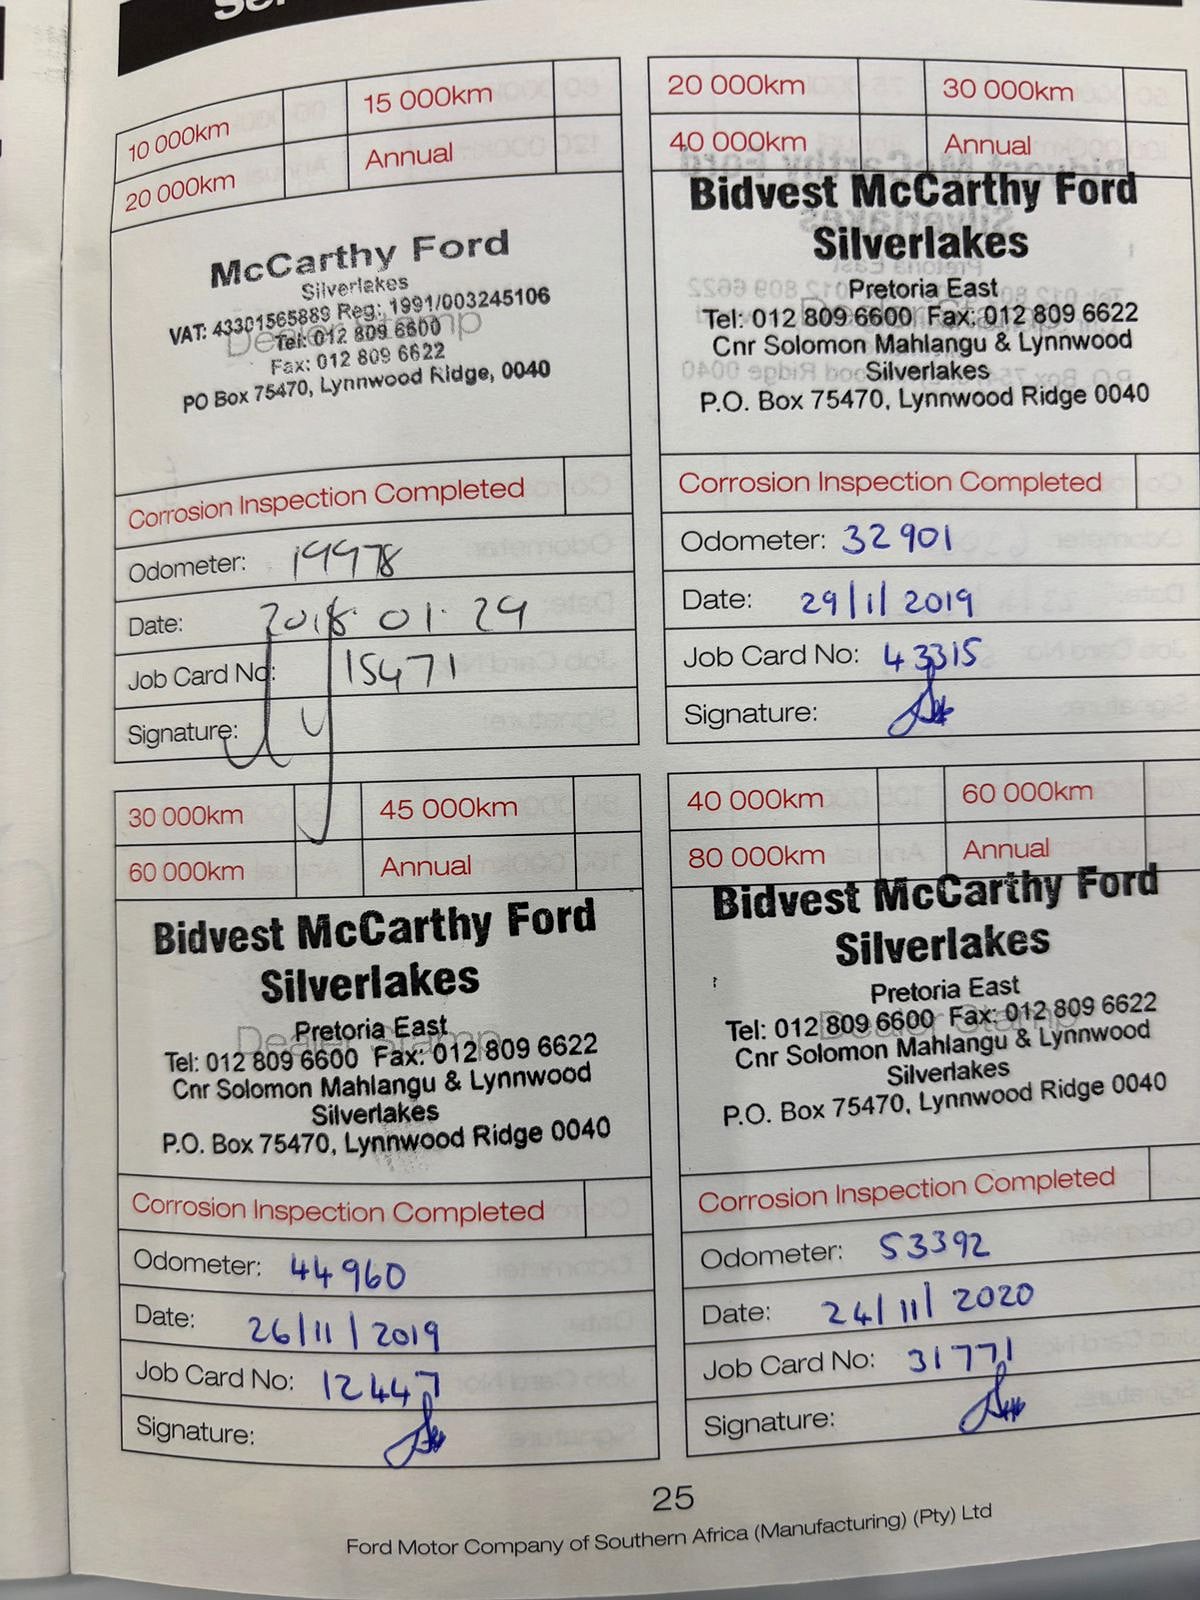 10 000km 15 000km
20 000km Annual
McCarthy Ford
Silverlakes
VAT: 43301565889 Reg: 1991/003245106
Dealer Stamp
Tel: 012 809 6600
Fax: 012 809 6622
PO Box 75470, Lynnwood Ridge, 0040
Corrosion Inspection Completed
Odometer: 19978
Date: 2018.01.29
Job Card No: 15471
Signature:
20 000km 30 000km
40 000km Annual
Bidvest McCarthy Ford
Silverlakes
Pretoria East
Tel: 012 809 6600 Fax: 012 809 6622
Cnr Solomon Mahlangu & Lynnwood
Silverlakes
P.O. Box 75470, Lynnwood Ridge 0040
Corrosion Inspection Completed
Odometer: 32901
Date: 29/1/2019
Job Card No: 43315
Signature:
30 000km 45 000km
60 000km Annual
Bidvest McCarthy Ford
Silverlakes
Pretoria East
Dealer Stamp
Tel: 012 809 6600 Fax: 012 809 6622
Cnr Solomon Mahlangu & Lynnwood
Silverlakes
P.O. Box 75470, Lynnwood Ridge 0040
Corrosion Inspection Completed
Odometer: 44960
Date: 26/11/2019
Job Card No: 12447
Signature:
40 000km 60 000km
80 000km Annual
Bidvest McCarthy Ford
Silverlakes
Pretoria East
Dealer Stamp
Tel: 012 809 6600 Fax: 012 809 6622
Cnr Solomon Mahlangu & Lynnwood
Silverlakes
P.O. Box 75470, Lynnwood Ridge 0040
Corrosion Inspection Completed
Odometer: 53392
Date: 24/11/2020
Job Card No: 31771
Signature:
25
Ford Motor Company of Southern Africa (Manufacturing) (Pty) Ltd